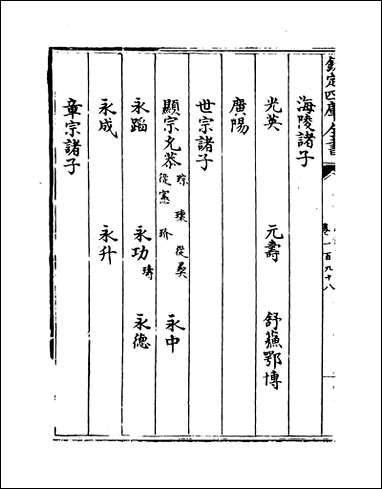 欽定四庫全書
卷一百九十八
海陵諸子
光英 元壽 舒蘇鄂博
廣陽
世宗諸子
顯宗允恭 琮 瓌 從彛 從憲 玠 永中
永蹈 永功 璹 永德
永成 永升
章宗諸子